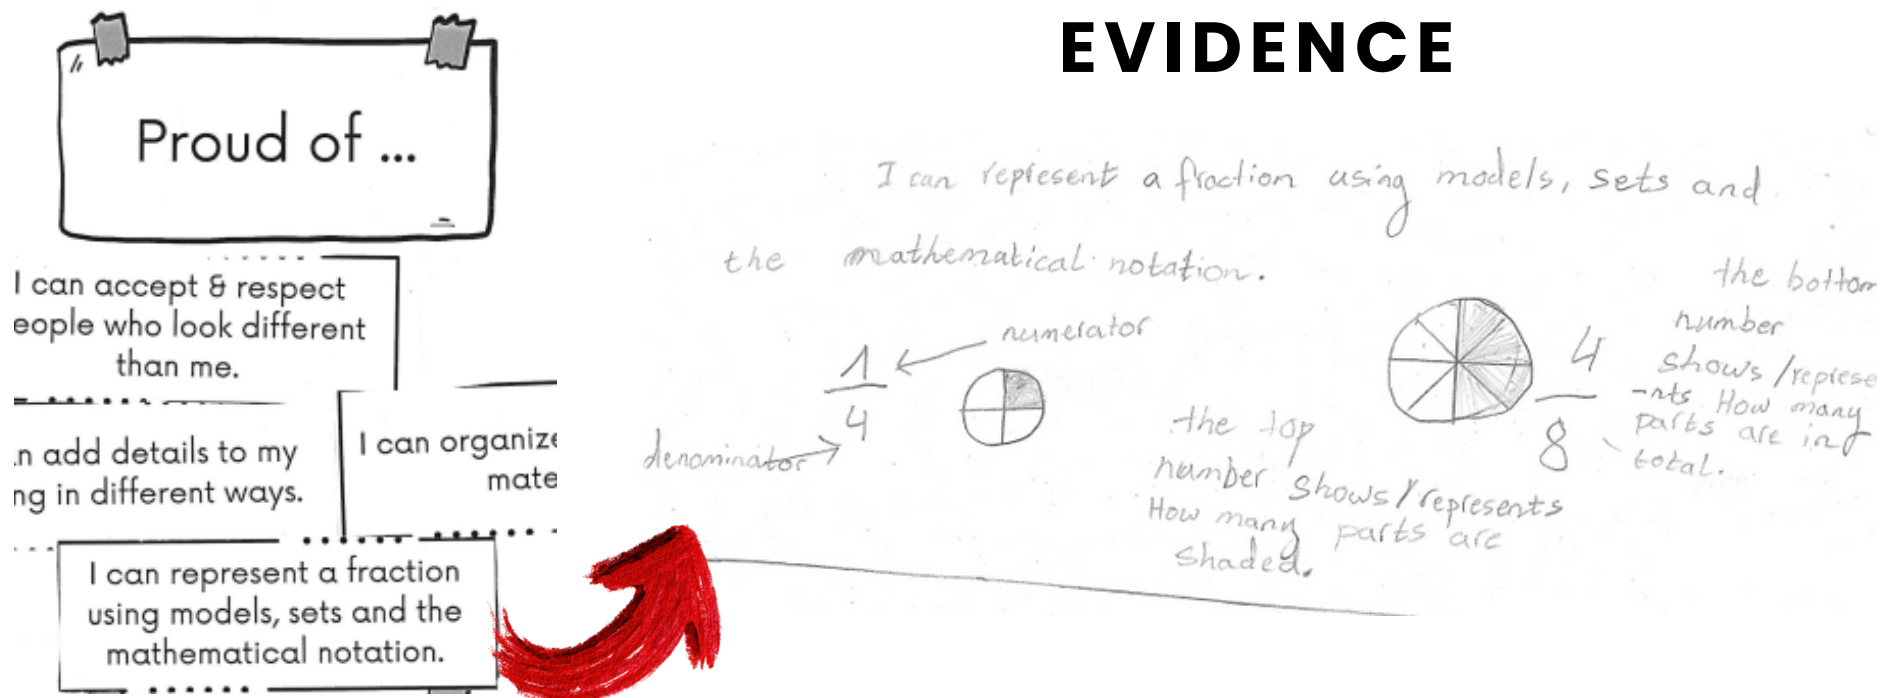 EVIDENCE
Proud of ...
I can accept & respect
eople who look different
than me.
n add details to my
ng in different ways.
I can organize
mate
I can represent a fraction
using models, sets and the
mathematical notation.
I can represent a fraction using models, sets and
the mathematical notation.
numerator
1
4
denominator
the top
number shows/represents
How many parts are
shaded.
4
8
the bottom
number
shows/represe
-nts How many
parts are in
total.